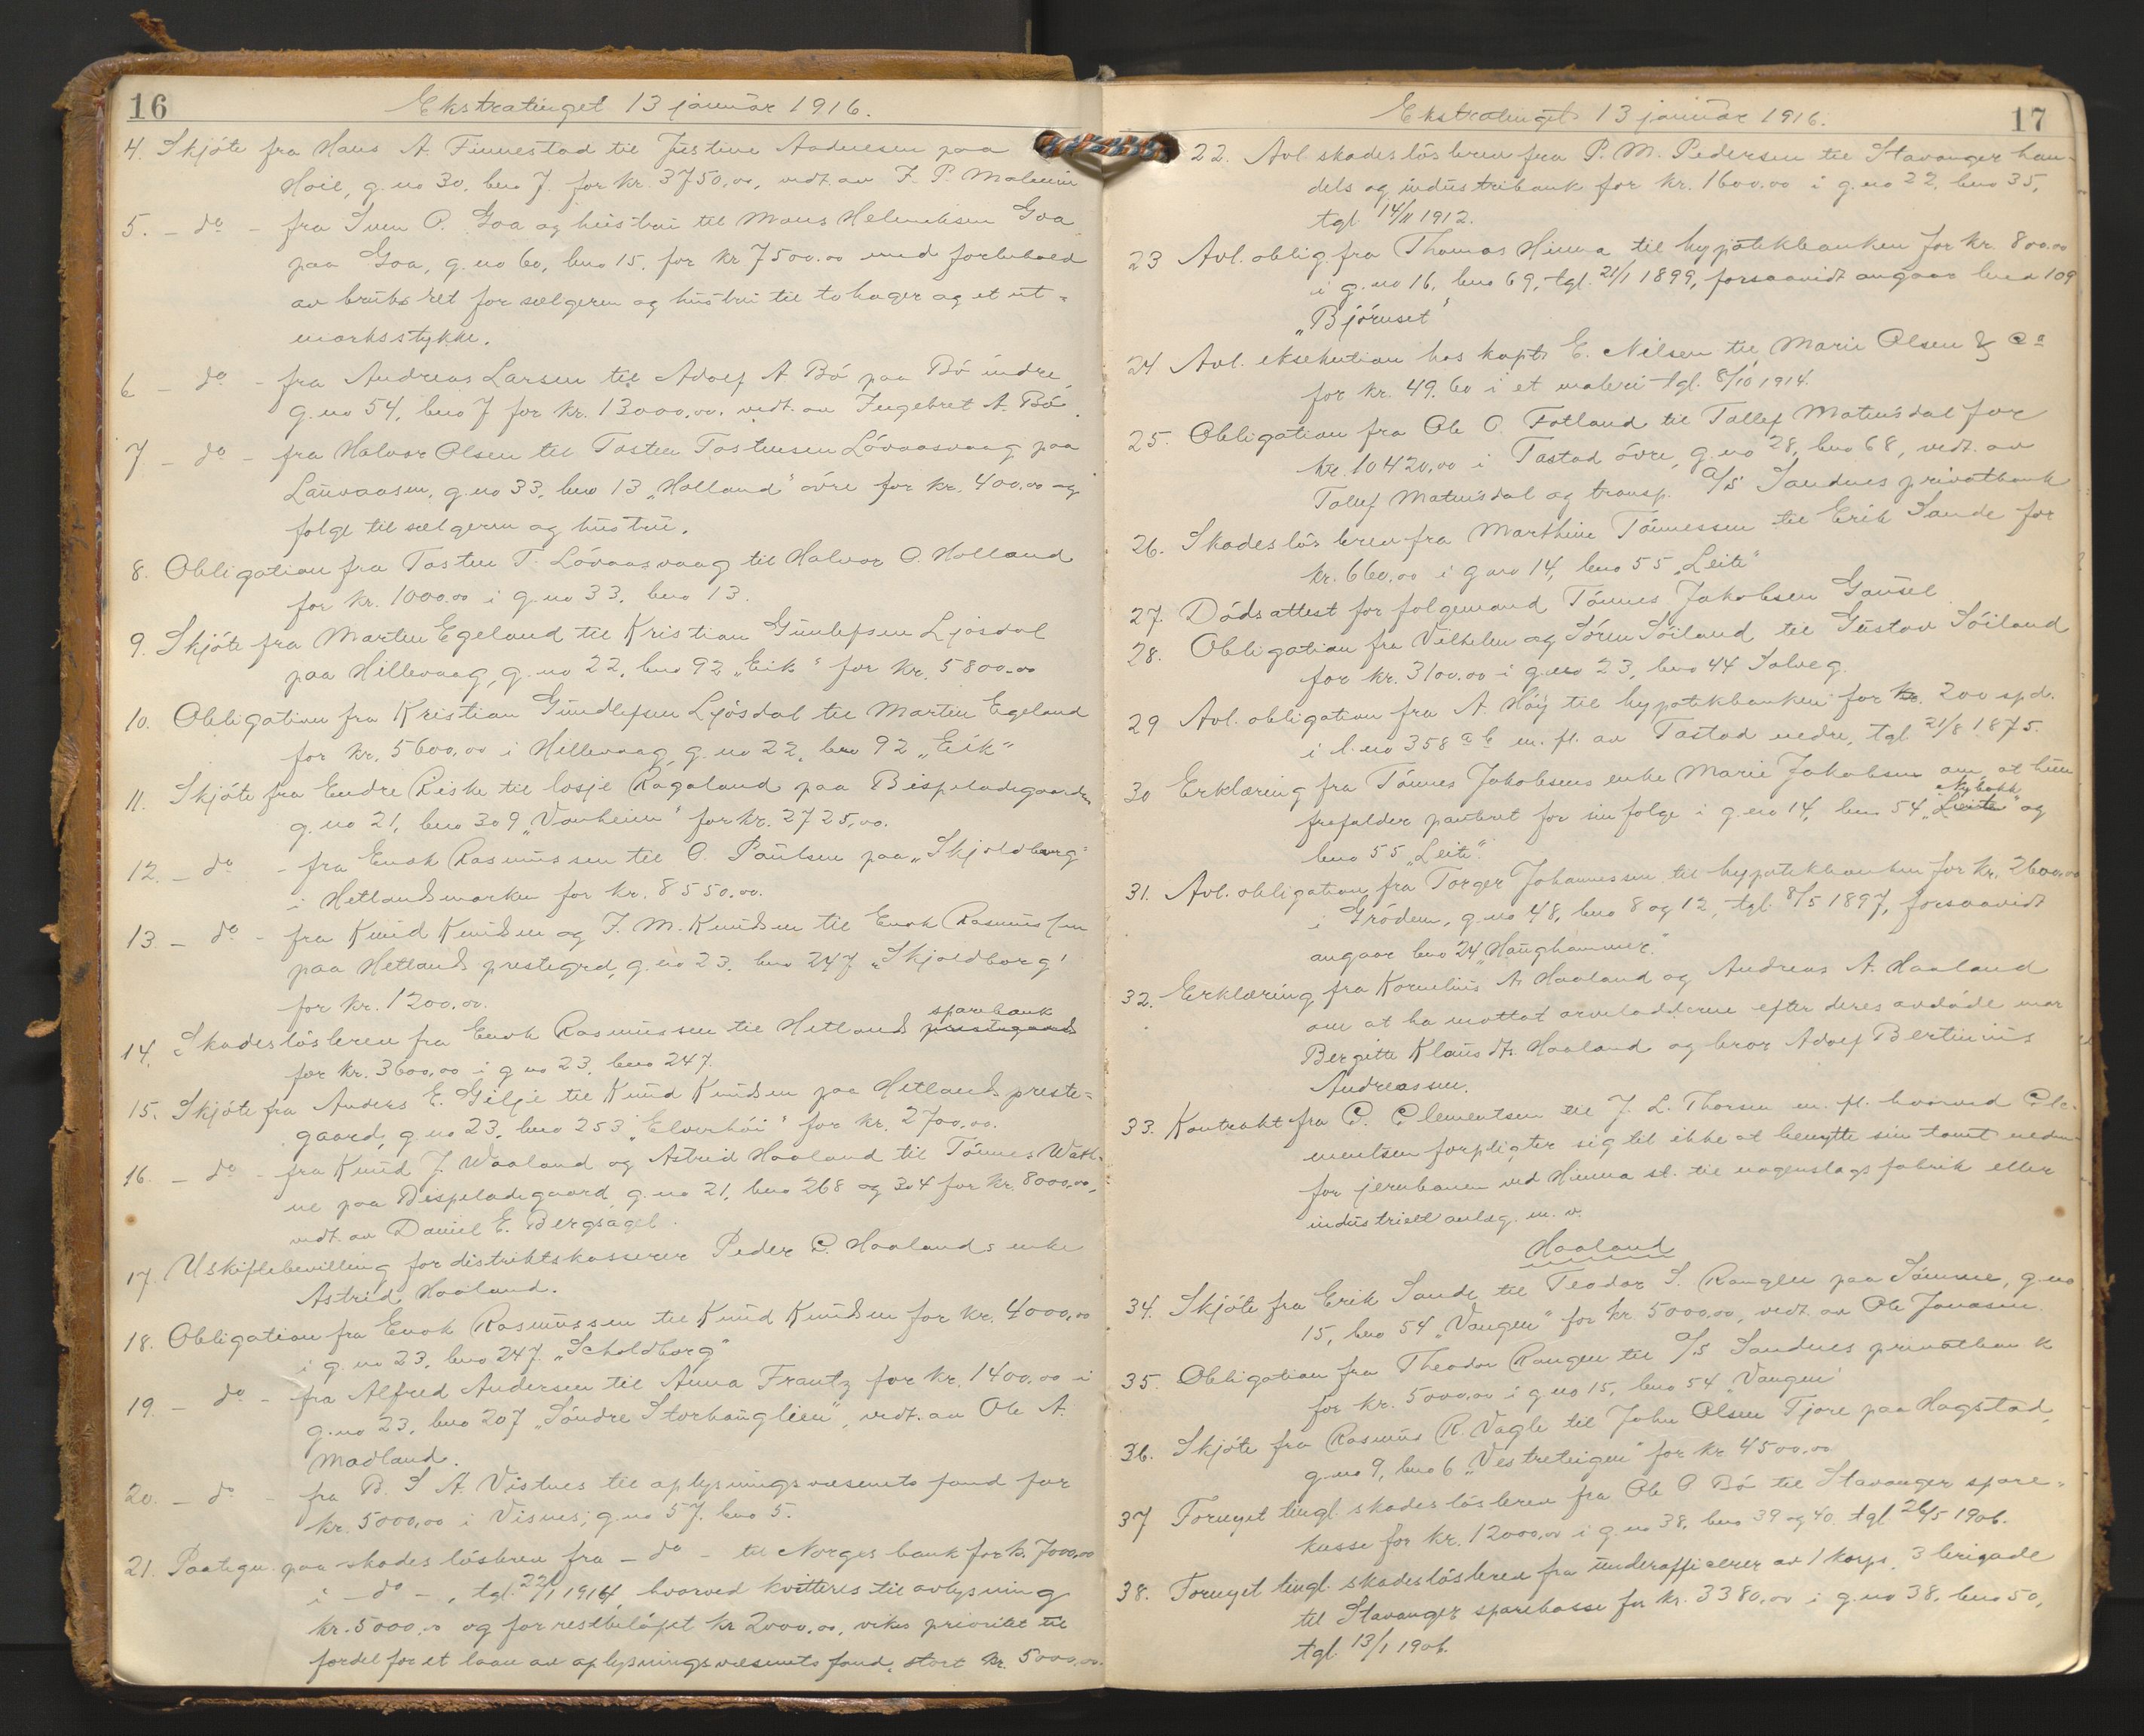 16
Ekstratinget 13 januar 1916.
4. Skjöte fra Hans A. Finnestad til Justine Aadnesen paa
Hoie, g.no 30, bno 7. for kr. 3750,00, vedt. av F. P. Malmin
5. - do - fra Sven P. Goa og hustru til Mons Helmiksen Goa
paa Goa, g.no 60, bno 15. for kr 7500.00 med forbehold
av bruksret for sælgeren og hustru til to hager og et ut-
marksstykke.
6 - do - fra Andreas Larsen til Adolf A Bö paa Bö indre
g.no 54, bno 7 for kr. 13000,00. vedt. av Ingebret A. Bö.
7 - do - fra Halvor Olsen til Tosten Tostensen Lövaasvaag paa
Lauvaasen, g.no 33, bno 13 „Holland" övre for kr. 400,00 og
folge til sælgeren og hustru.
8. Obligation fra Tosten T. Lövaasvaag til Halvor O. Holland
for kr. 1000.00 i g.no 33, bno 13.
9. Skjöte fra Marten Egeland til Kristian Gunlefsen Ljosdal
paa Hillevaag, g.no 22, bno 92 „Eik" for kr. 5800.00
10. Obligation fra Kristian Gundlefsen Ljösdal til Martin Egeland
for kr. 5600,00 i Hillevaag g.no 22, bno 92 „Eik"
11. Skjöte fra Endre Riske til losje Rogaland paa Bispeladegaarden
g.no 21, bno 309 „Vonheim" for kr. 2725,00.
12. - do - fra Enok Rasmussen til O. Paulsen paa „Skjoldborg"
i Hetlandsmarken for kr. 8550.00.
13. - do - fra Knud Knudsen og J. M. Knudsen til Enok Rasmussen
paa Hetlands prestegrd, g.no 23. bno 247 „Skjoldborg"
for kr. 1200.00.
sparebank
14. Skadeslösbrev fra Enok Rasmussen til Hetlands prestegaards
for kr. 3600,00 i g no 23, bno 247.
15. Skjöte fra Anders E. Gilje til Knud Knudsen paa Hetlands preste-
gaard, g.no 23, bno 253 „Elverhöi" for kr. 2700,00.
16. - do - fra Knud J. Waaland og Astrid Haaland til Tönnes Wath-
ne paa Bispeladegaard g.no 21, bno 268 og 304 for kr. 8000,00,
vedt. av Daniel E. Bergsagel.
17. Uskiftebevilling for distriktskasserer Peder C. Haalands enke
Astrid Haaland.
18. Obligation fra Enok Rasmussen til Knud Knudsen for kr. 4000,00
i g.no 23, bno 247. „Scholdborg"
19. - do - fra Alfred Andersen til Anna Frantz for kr. 1400.00 i
g.no 23, bno 207 „Söndre Storhauglien", vedt. av Ole A.
Madland.
20. - do - fra B. S A. Vistnes til oplysningsvæsenets fond for
kr. 5000,00 i Visnes; g.no 57. bno 5.
21. Paategn. paa skadeslösbrev fra - do - til Norges bank for kr. 7000,00
i - do - , tgl. 22/1 1914, hvorved kvitteres til avlysning
kr. 5000,00 og for restbelöpet kr 2000.00, vikes prioritet til
fordel for et laan av oplysningsvæsenets fond, stort kr. 5000.00.
Ekstratinget 13 januar 1916.
17
22. Avl skadeslösbrev fra P. M. Pedersen til Stavanger han-
dels og industribank for kr. 1600.00 i g.no 22, bno 35,
tgl 14/11 1912.
23 Avl. oblig. fra Thomas Hinna til hypotekbanken for kr. 800.00
i g.no 16, bno 69, tgl. 21/1 1899, forsaavidt angaar bno 109
„Björnset"
24 Avl. eksekution hos kapt. E. Nilsen til Marie Olsen & Co
for kr. 49.60 i et maleri tgl. 8/10 1914.
25. Obligation fra Ole O. Fotland til Tollef Matensdal for
kr. 10420,00 i Tastad övre, g.no 28, bno 68, vedt. av
Tollef Matensdal og transp. A/S Sandnes privatbank
26. Skadeslösbrev fra Marthine Tönnessen til Erik Sande for
kr. 660,00 i g no 14, bno 55 „Leite"
27. Dödsattest for folgemand Tönnes Jakobsen Gausel
28. Obligation fra Vilhelm og Sören Söiland til Gustav Söiland
for kr. 3100.00 i g.no 23, bno 44 Solveg.
29 Avl. obligation fra A. Höy til hypotekbanken for kr. 200 spd.
i l.no 358 a b m. fl. av Tastad nedre, tgl 21/8 1875.
30 Erklæring fra Tönnes Jakobsens enke Marie Jakobsen om at hun
Nybakk
frafalder panteret for sin folge i g.no 14, bno 54 „Leite" og
bno 55 „Leite".
31. Avl. obligation fra Torger Johannessen til hypotekbanken for kr. 2600,00
i Gröden, g.no 48, bno 8 og 12, tgl. 8/5 1897, forsaavidt
angaar bno 24 „Haughammer."
32. Erklæring fra Kornelius A. Haaland og Andreas A. Haaland
om at ha mottat arvelodderne efter deres avdöde mor
Bergitte Klausdtr. Haaland og bror Adolf Bertinius
Andreassen.
33. Kontrakt fra C. Clementsen til J. L. Thorsen m. fl. hvorved Cle-
mentsen forpligter sig til ikke at benytte sin tomt neden-
for jernbanen ved Hinna st. til nogenslags fabrik eller
industrielt anlæg. m. v.
Haaland
34. Skjöte fra Erik Sande til Teodor S. Rangen paa Sömme, g.no
15, bno 54 „Vangen" for kr. 5000,00, vedt. av Ole Jonasen.
35. Obligation fra Theodor Rangen til A/S Sandnes privatbank
for kr. 5000.00 i g no 15, bno 54 „Vangen"
36. Skjöte fra Rasmus R. Vagle til John Olsen Tjore paa Hagstad,
g.no 9, bno 6 „Vestreteigen" for kr 4500.00.
37 Fornyet tingl. skadeslösbrev fra Ole O. Bö til Stavanger spare-
kasse for kr. 12000,00 i g.no 38, bno 39 og 40. tgl. 26/5 1906.
38. Fornyet tingl. skadeslösbrev fra underofficerer av 1 korps. 3 brigade
til Stavanger sparekasse for kr. 3380,00 i g.no 38, bno 50,
tgl. 13/1 1906.